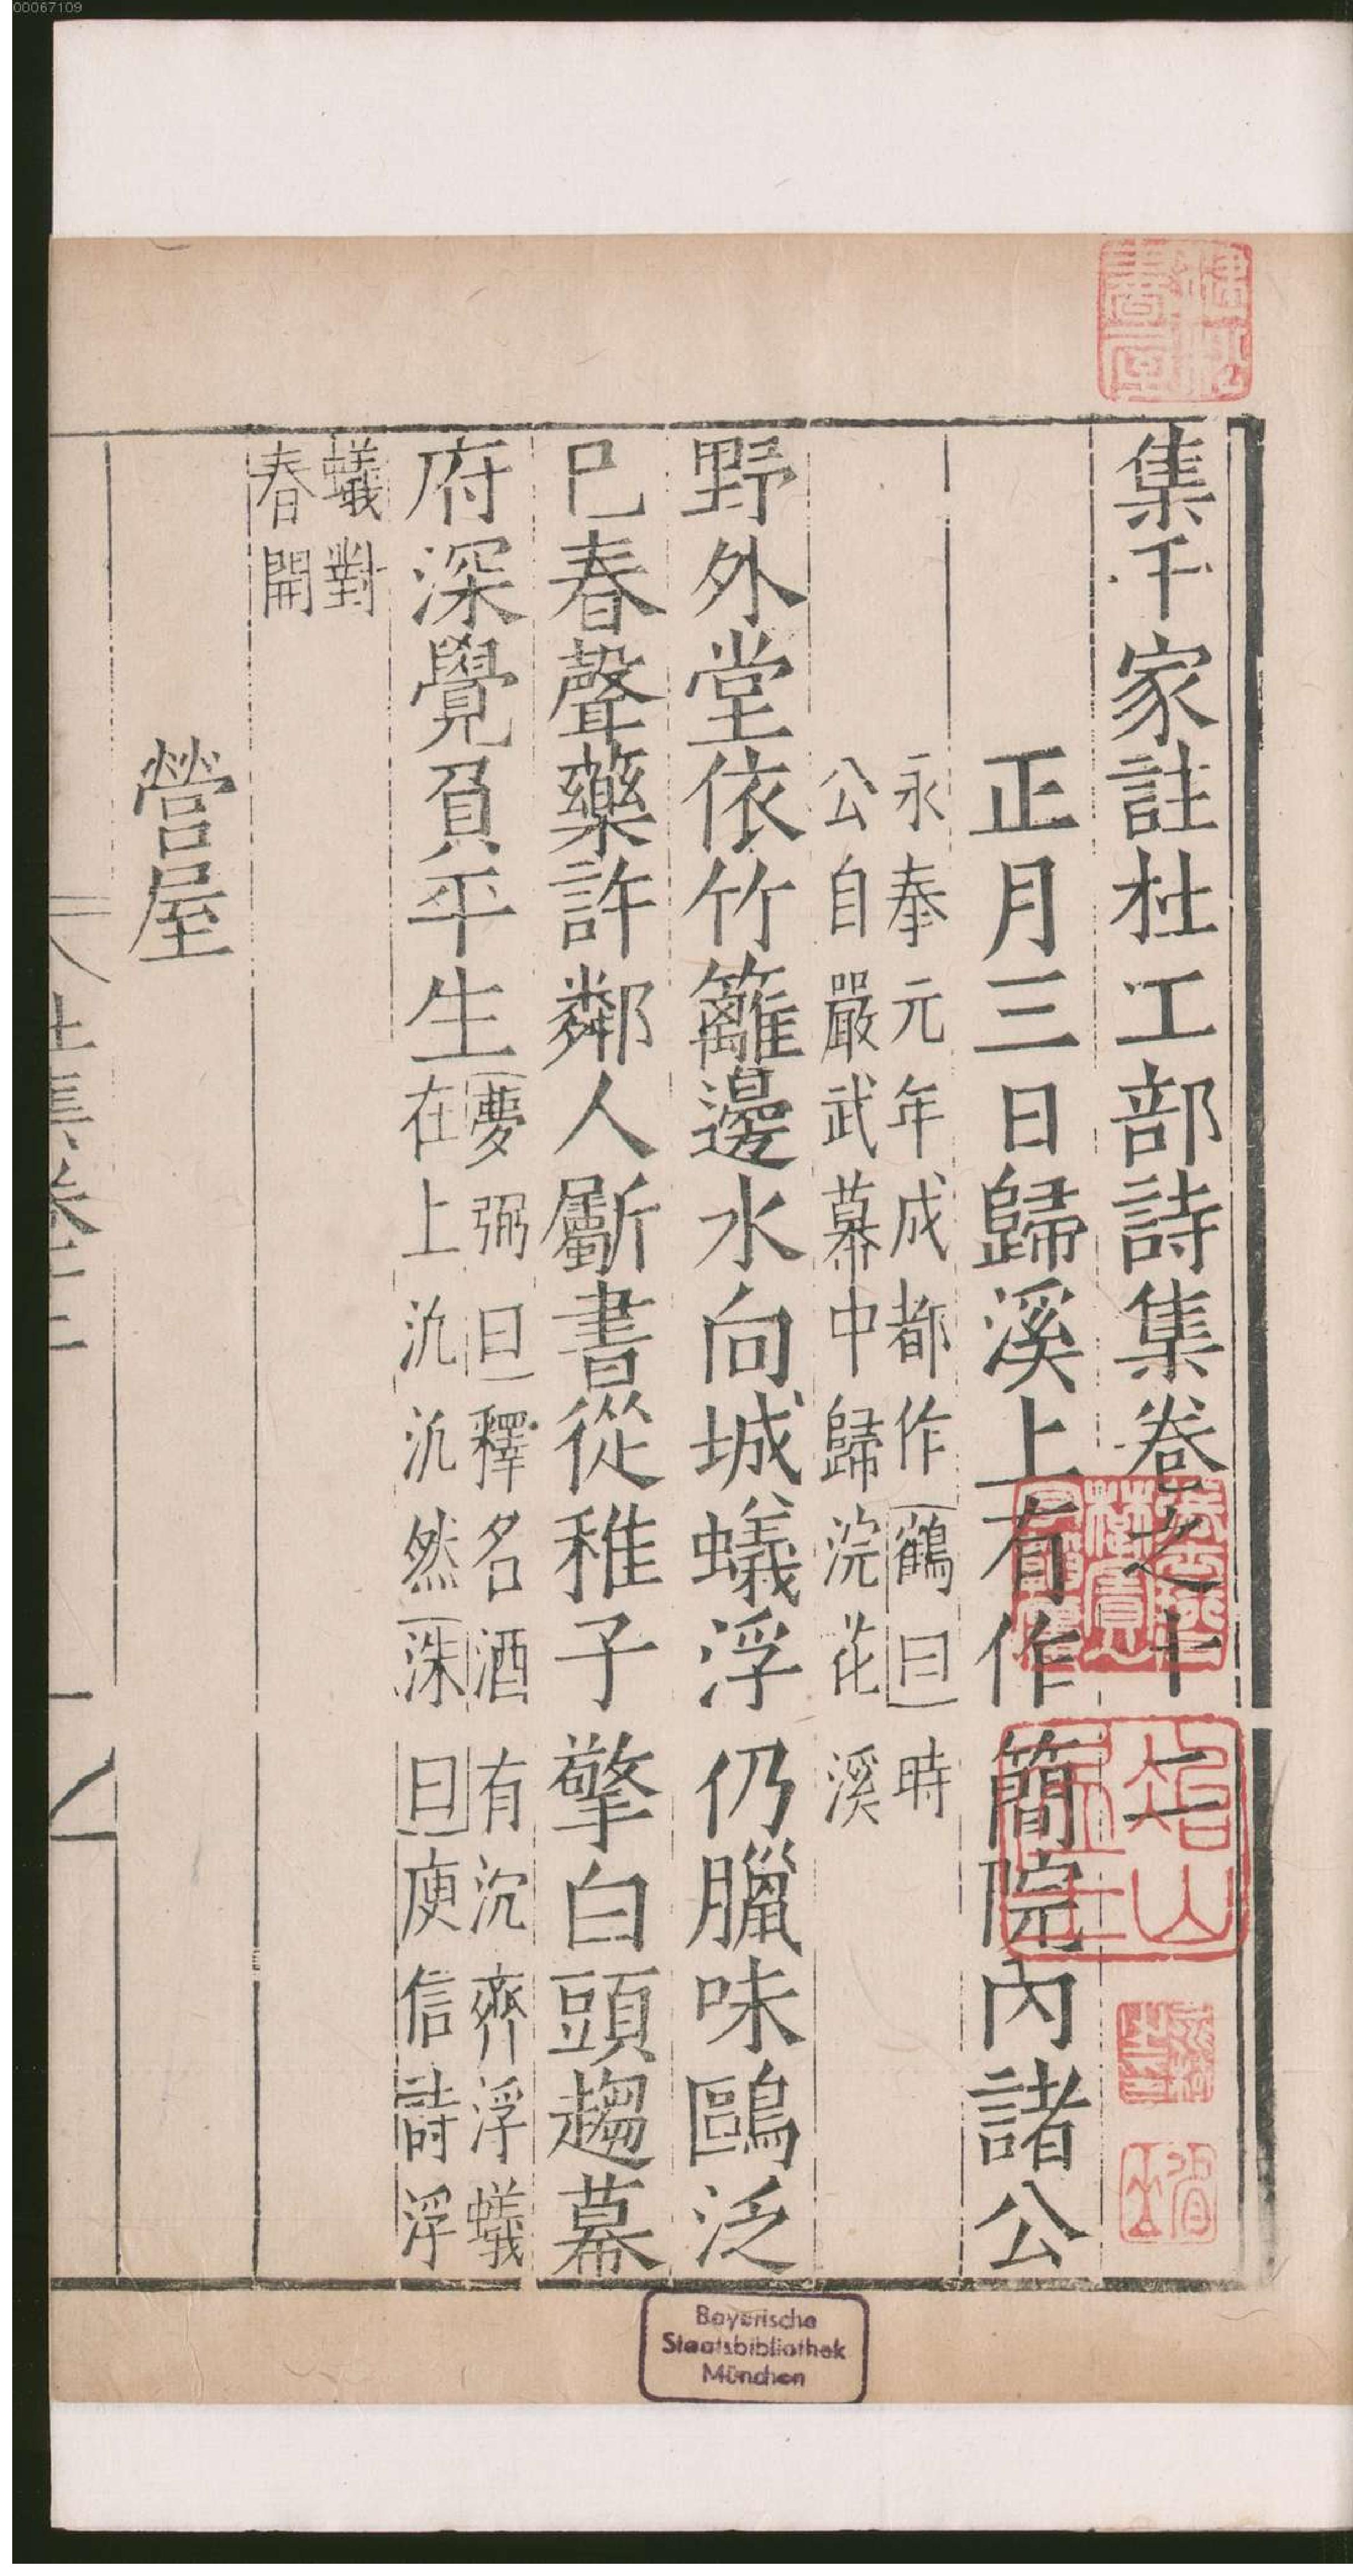 00067109
集千家註杜工部詩集卷之十二
正月三日歸溪上有作簡院內諸公
永泰元年成都作鶴曰時
公自嚴武幕中歸浣花溪
野外堂依竹籬邊水向城蟻浮仍臘味鷗泛
已春聲藥許鄰人斸書從稚子擎白頭趨幕
府深覺負平生
夢弼曰釋名酒有沉齊浮蟻
在上汎汎然洙曰庾信詩浮
蟻對
春開
營屋
杜集卷十二
一
Bayerische
Staatsbibliothek
München